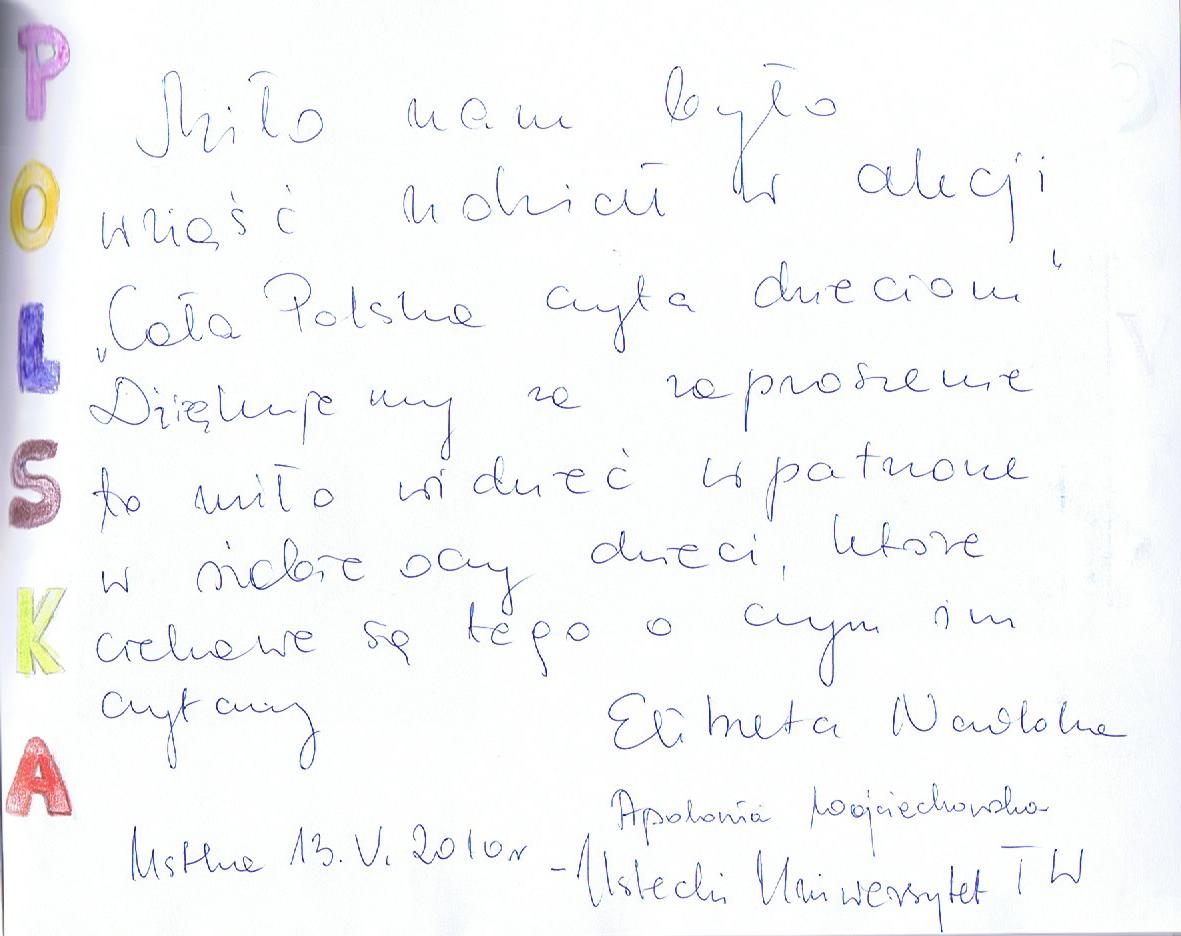 POLSKA
Miło nam było
wziąść udział w akcji
„Cała Polska czyta dzieciom"
Dziękujemy za zaproszenie
to miło widzieć wpatrzone
w siebie oczy dzieci, które
ciekawe są tego o czym im
czytamy
Elżbieta
Apolonia Wojciechowska
Ustka 13.V.2010r - Ustecki Uniwersytet TW